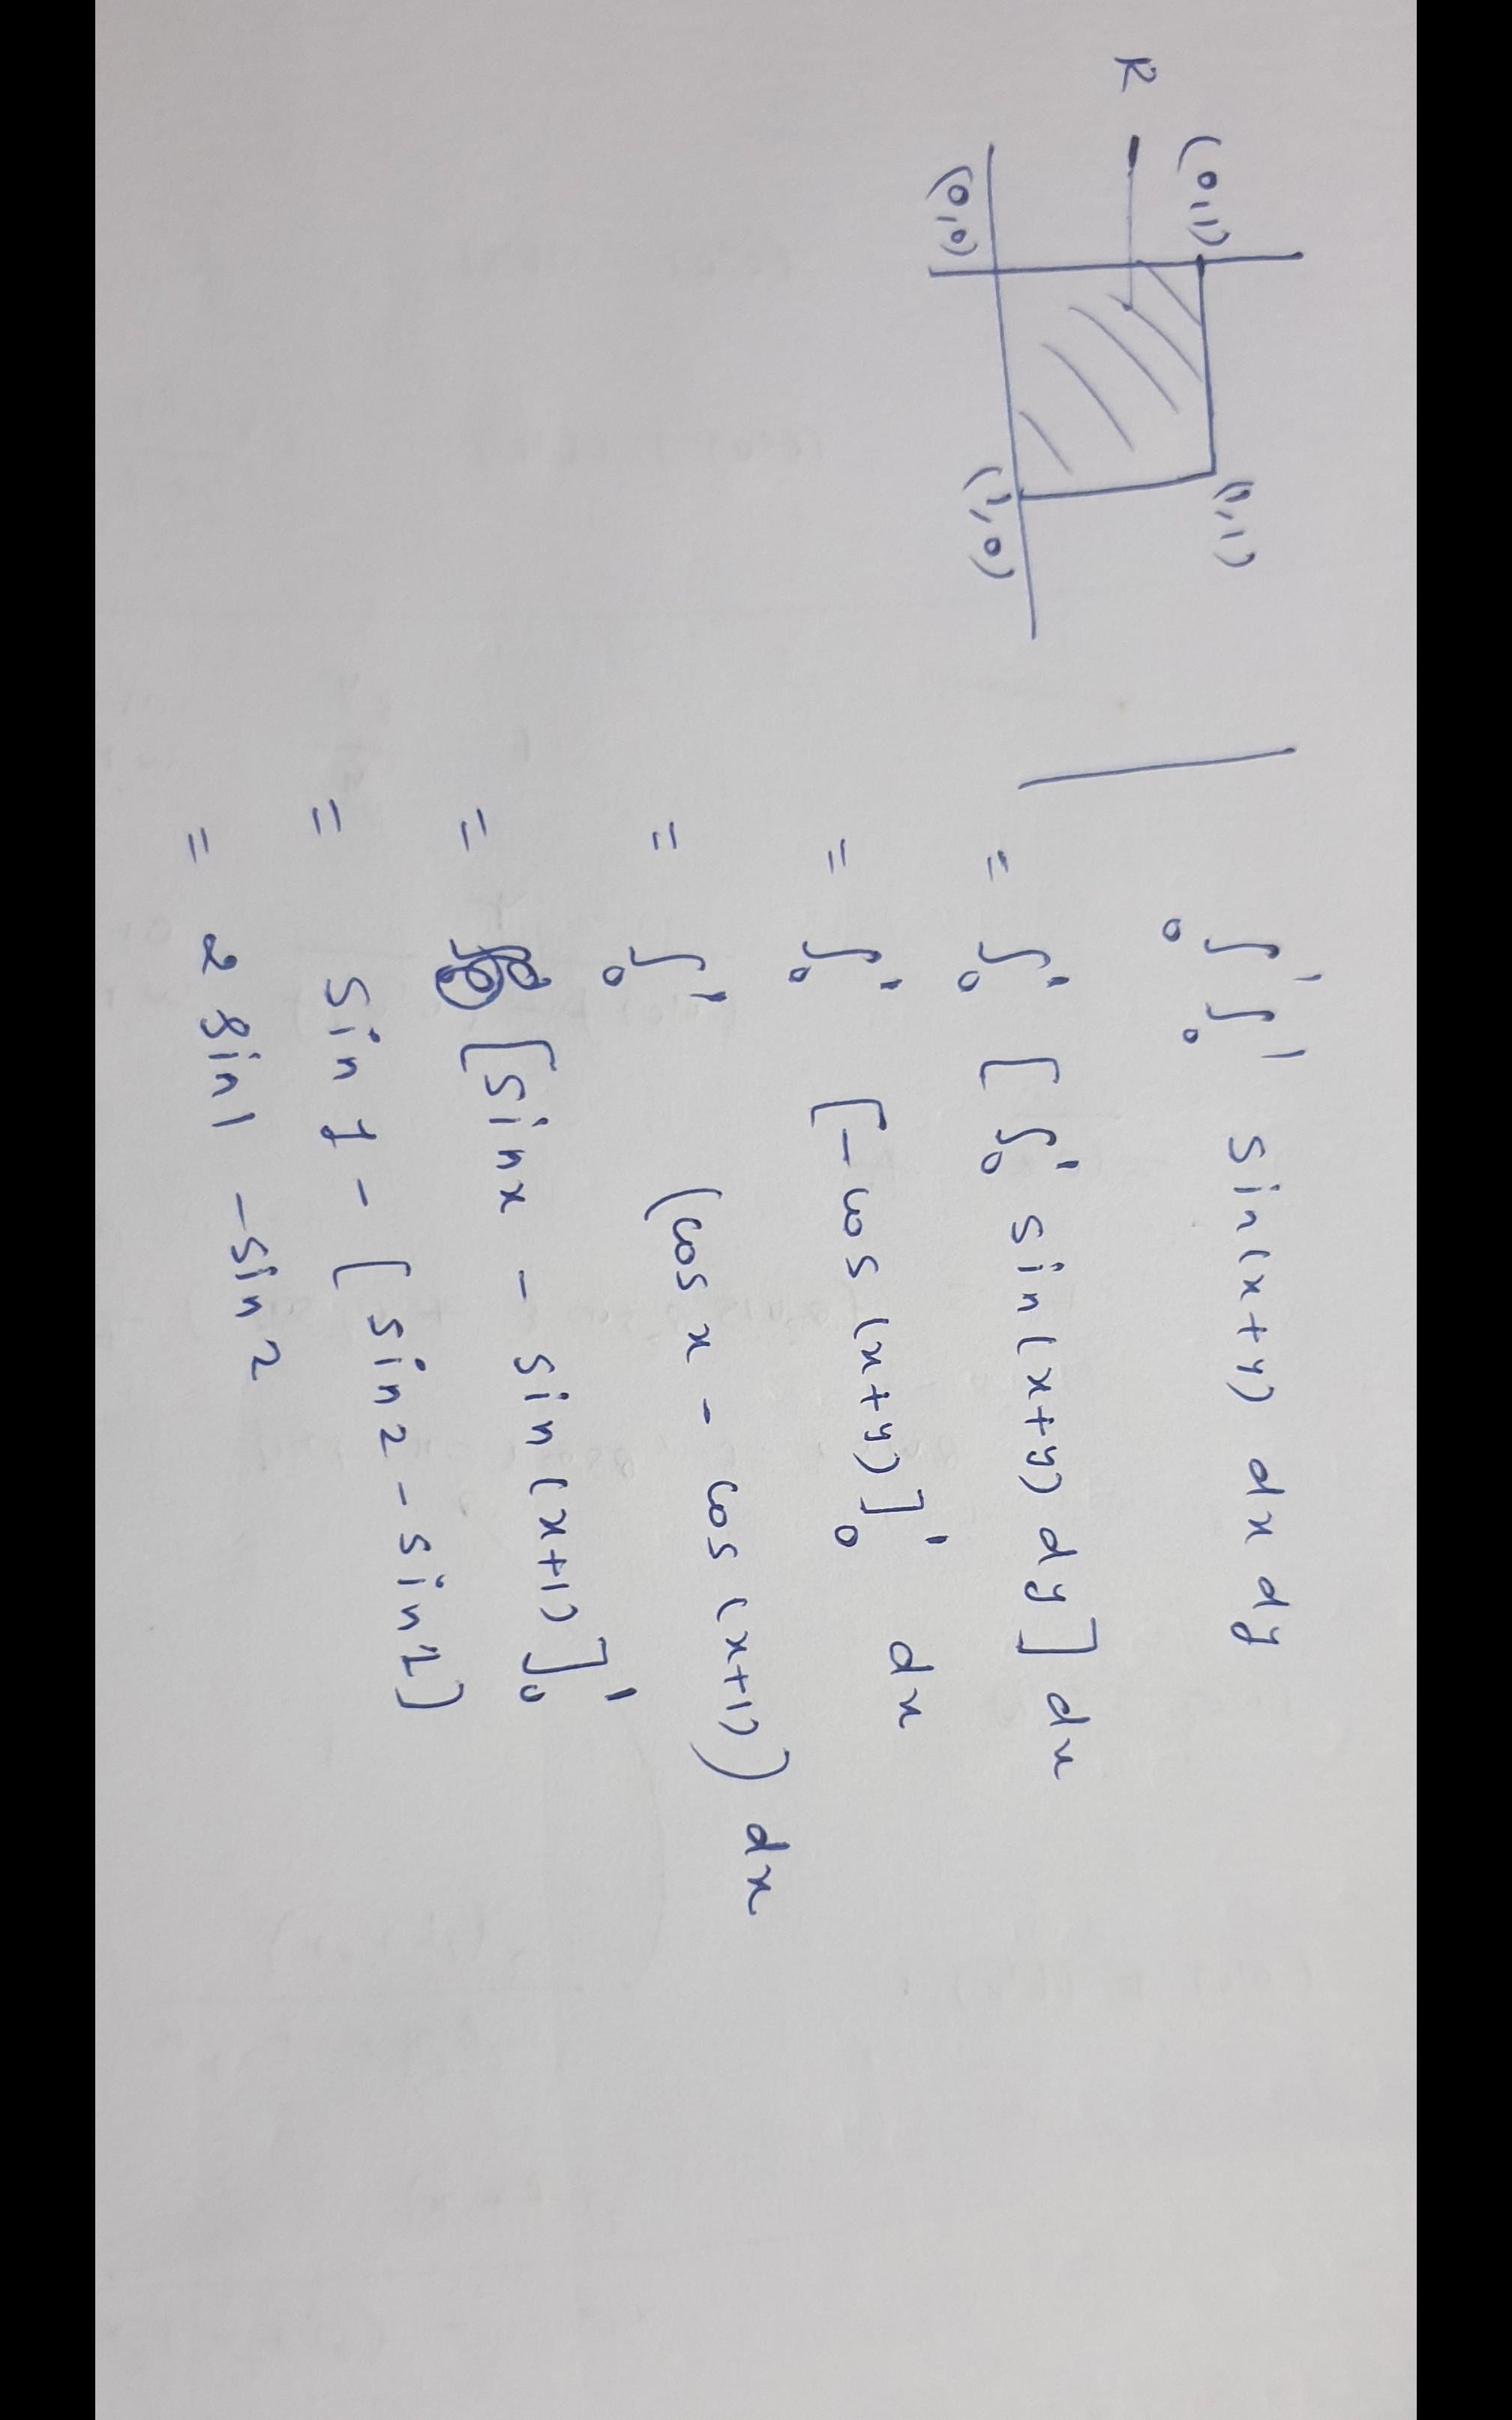 R
(0,1)
(1,1)
(0,0)
(1,0)
∫₀¹ ∫₀¹ sin(x+y) dx dy
= ∫₀¹ [ ∫₀¹ sin(x+y) dy ] dx
= ∫₀¹ [-cos(x+y)]₀¹ dx
= ∫₀¹ (cos x - cos(x+1)) dx
= [sinx - sin(x+1)]₀¹
= sin 1 - [sin2 - sin1)
= 2 sin1 - sin2